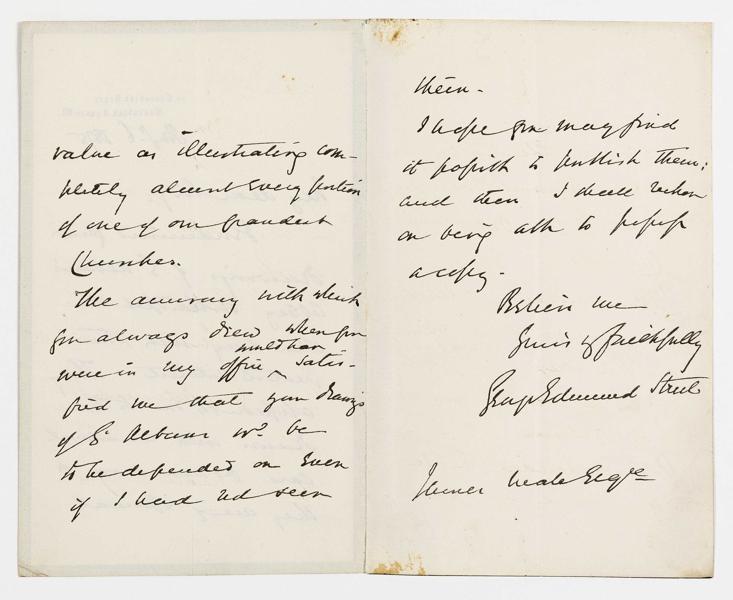 value as illustrating com-
pletely almost every portion
of one of our grandest
Churches.
The accuracy with which
you always drew when you
would have
were in my office ‸ satis-
fied me that your drawings
of St Albans wd. be
to be depended on even
if I had not seen
them.
I hope you may find
it possible to publish them;
and then I shall reckon
on being able to possess
a copy.
Believe me
Yours vy faithfully
George Edmund Street
James Neale Esqre